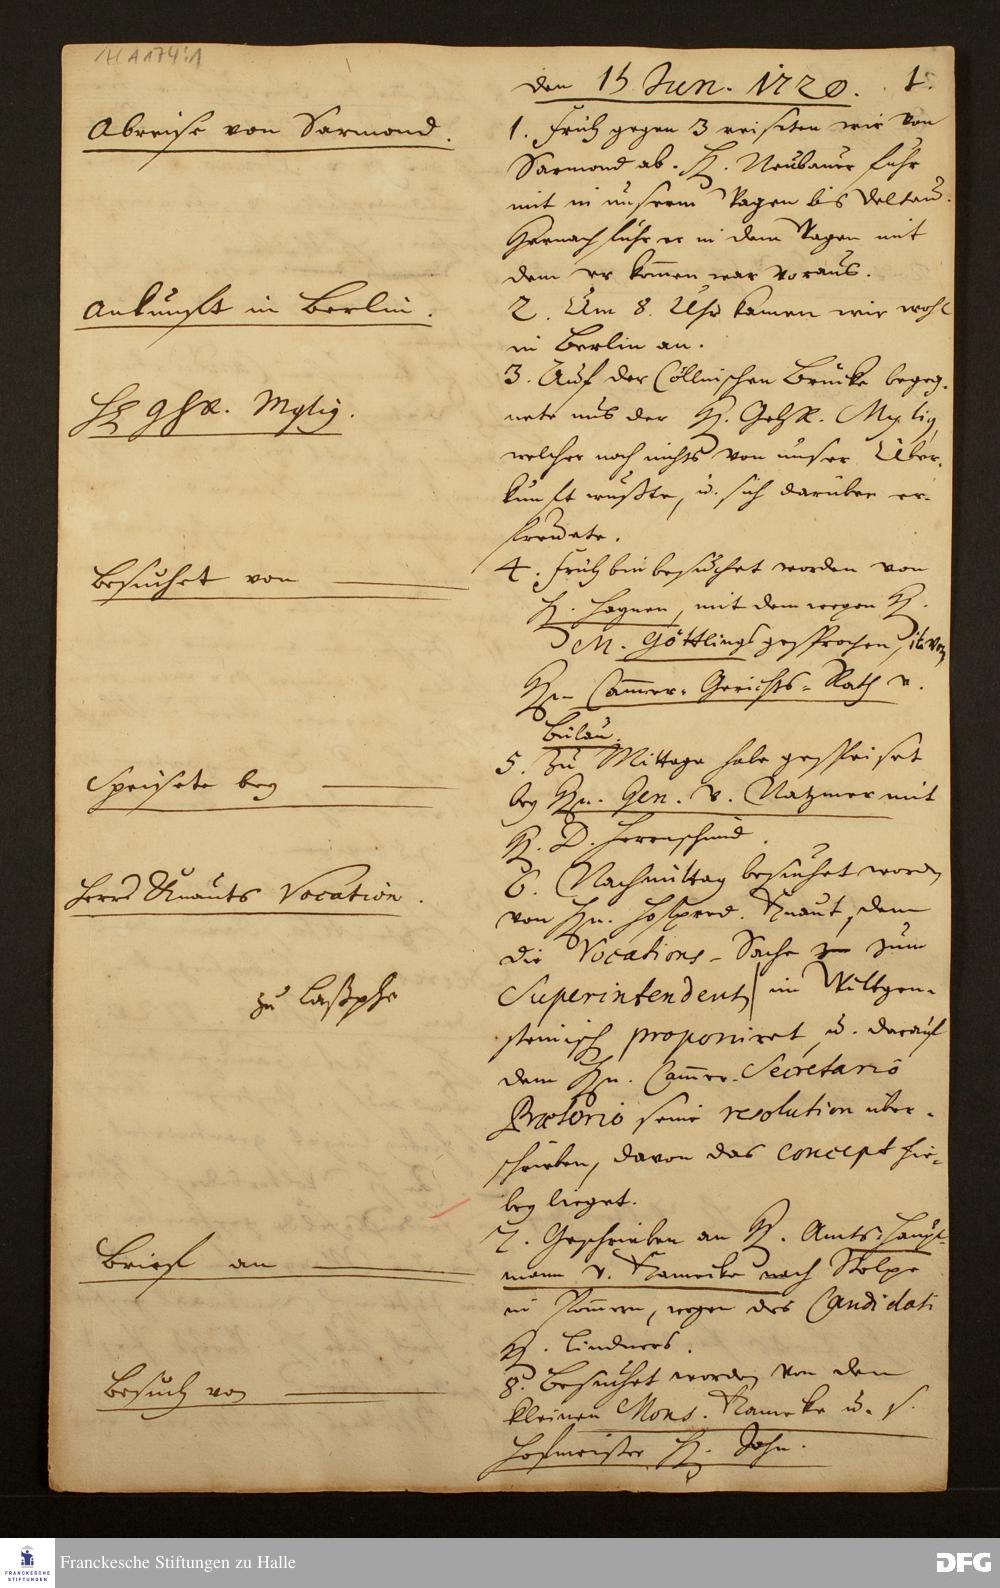 H A 174:1
den 15 Jun. 1720. 1.
Abreise von Sarmond.
1. Früh gegen 3 reiseten wir von
Sarmond ab. H. Neubauer fuhr
mit in unserm Wagen bis Deltau.
Hernach fuhr er in dem Wagen mit
dem er kom̅en war voraus.
Ankunfft in Berlin.
2. Um 8. Uhr kamen wir wohl
in Berlin an.
3. Auf der Cöllnischen Brücke begeg-
H. GhR. Mylig.
nete uns der H. GehR. Mylig,
welcher noch nichts von unser Über-
kunfft wußte, u. sich darüber er-
freuete.
Besuchet von
4. Früh bin besuchet worden von
H. Hagnen, mit dem wegen H.
M. Göttlings gesprochen, it. von
Hn. Cam̅er-Gerichts-Rath v.
Bülau.
Speisete bey
5. Zu Mittage habe gespeiset
bey Hn. Gen. v. Natzmer mit
H. D. Herrnschmid.
Herrn Knauts Vocation.
6. Nachmittag besuchet worden
von Hn. Hofpred. Knaut, dem
die Vocations-Sache zum
zu Laßphe
Superintendent im Wittgen-
steinisch proponiret, u. darauf
dem Hn. Cam̅er-Secretario
Prætorio seine resolution über-
schrieben, davon das concept hie-
bey lieget.
Brief an
7. Geschrieben an H. Amts-Haupt-
mann v. Kameike nach Stolpe
in Pom̅ern, wegen des Candidati
H. Lindners.
Besuch von
8. Besuchet worden von dem
kleinen Mons. Kameke u. s.
Hofmeister H. John.
FRANCKESCHE STIFTUNGEN
Franckesche Stiftungen zu Halle
DFG